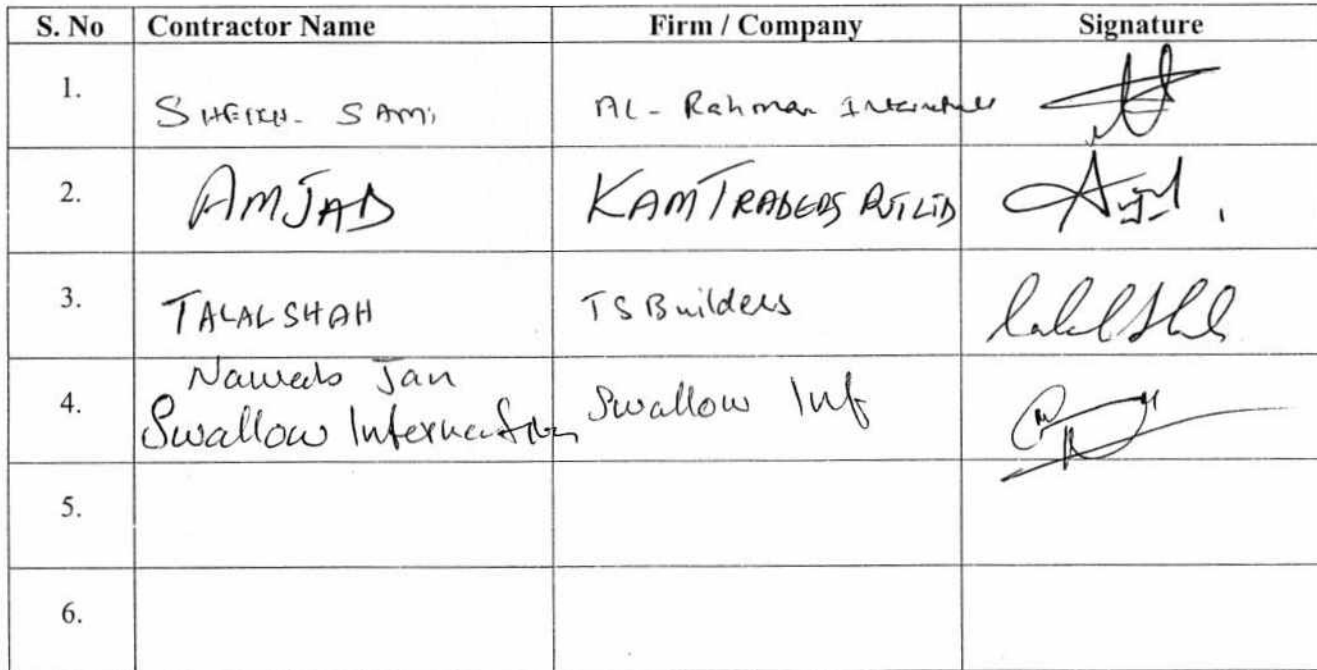 S. No Contractor Name Firm / Company Signature
1. SHEIKH- SAMI AL- Rahman
2. AMJAD KAM TRADERS PVT LTD
3. TALAL SHAH TS Builders
Naweeb Jan
4. Swallow International Swallow Int
5.
6.